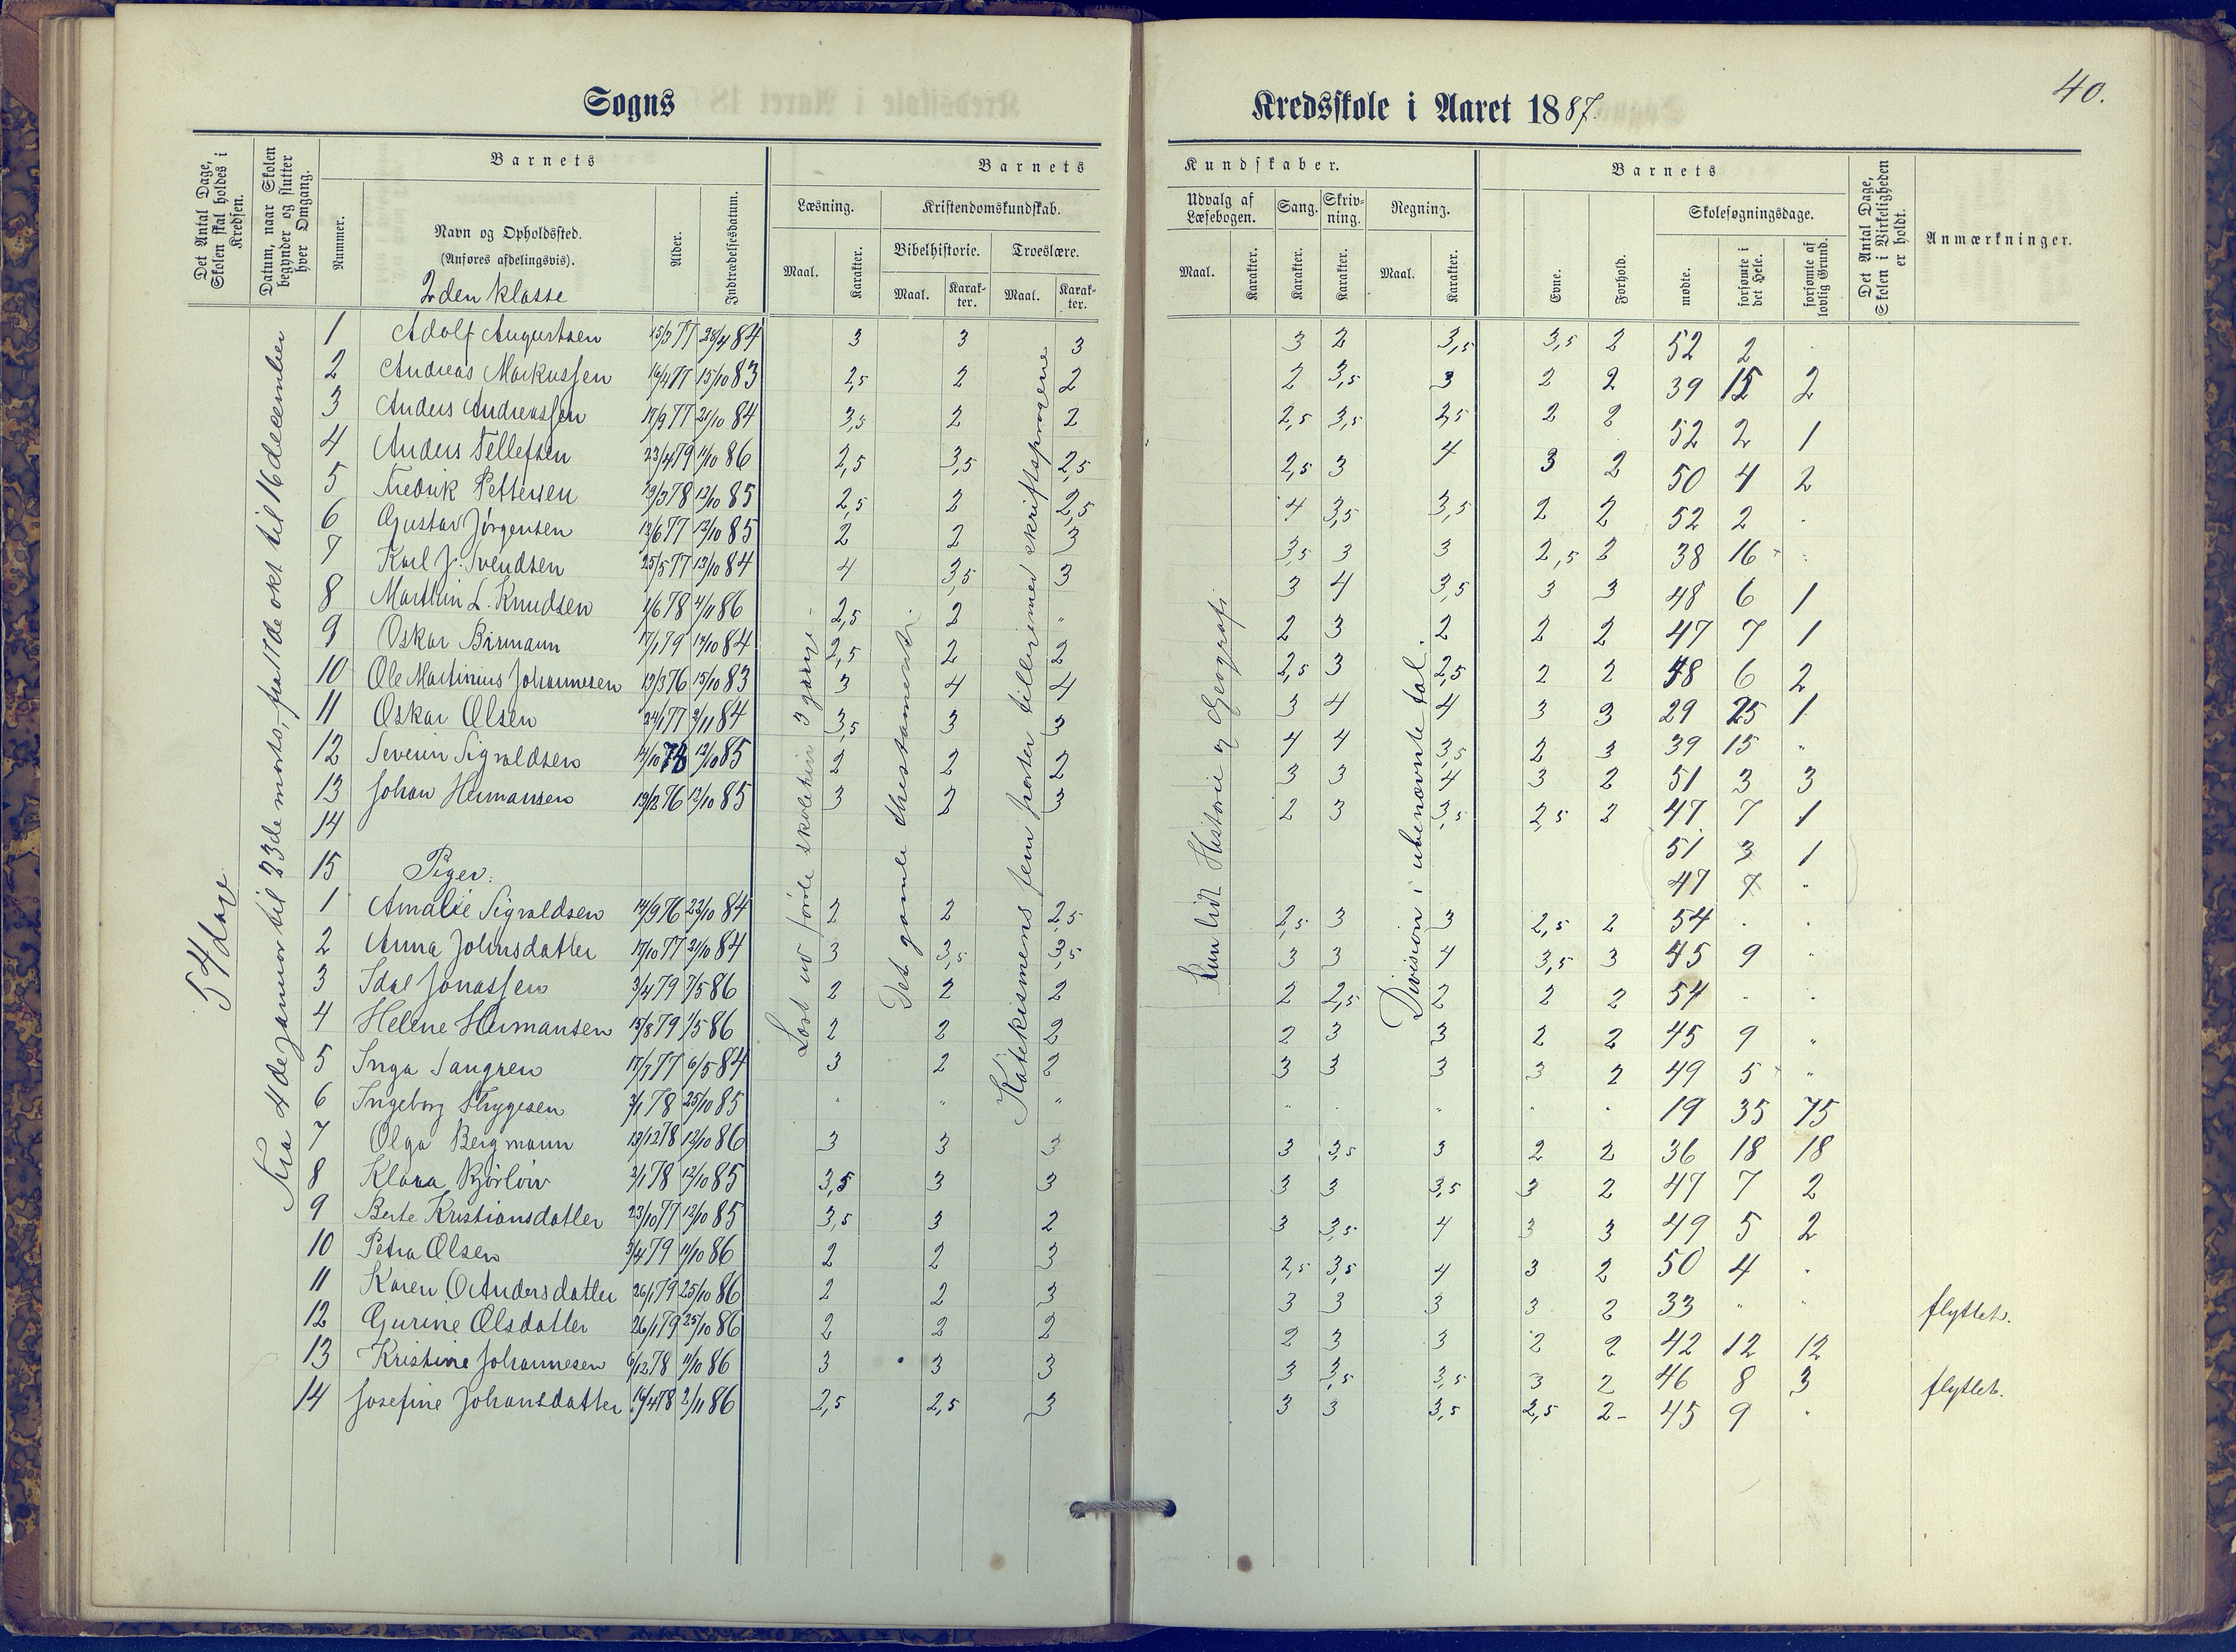 40.
Sogns
Kredsskole i Aaret 1887.
Det Antal Dage, Skolen skal holdes i Kredsen.
Datum, naar Skolen begynder og slutter hver Omgang.
Barnets
Nummer.
Navn og Opholdssted.
(Anføres afdelingsvis).
2den klasse
Alder.
Indtrædelsesdatum.
Barnets
Læsning.
Maal.
Karakter.
Kristendomskundskab.
Bibelhistorie.
Maal.
Karakter.
Troeslære.
Maal.
Karakter.
Kundskaber.
Udvalg af Læsebogen.
Maal.
Karakter.
Sang.
Karakter.
Skrivning.
Karakter.
Regning.
Maal.
Karakter.
Barnets
Evne.
Forhold.
Skolesøgningsdage.
mødte.
forsømte i det Hele.
forsømte af lovlig Grund.
Det Antal Dage, Skolen i Virkeligheden er holdt.
Anmærkninger.
54 dage
Fra 4de januar til 23de marts, fra 17de okt til 16 december
Læst ud første skoletrin 3 gange
Det gamle Thestamente
Katekismens fem parter tilligemed skriftsprogene
Kun lidt Historie og Geografi
Division i ubenævnte tal.
1 Adolf Augustsen 15/3 77 28/4 84 3 3 3 3 2 3,5 3,5 2 52 2 .
2 Andreas Markussen 16/4 77 15/10 83 2,5 2 2 2 3,5 3 2 2 39 15 2
3 Anders Andreassen 17/9 77 21/10 84 3,5 2 2 2,5 3,5 2,5 2 2 52 2 1
4 Anders Tellefsen 23/4 79 11/10 86 2,5 3,5 2,5 2,5 3 4 3 2 50 4 2
5 Fredrik Pettersen 19/3 78 12/10 85 2,5 2 2,5 4 3,5 3,5 2 2 52 2 .
6 Gustav Jørgensen 12/6 77 12/10 85 2 2 3 3,5 3 3 2,5 2 38 16 .
7 Karl J. Svendsen 25/5 77 13/10 84 4 3,5 3 3 4 3,5 3 3 48 6 1
8 Marthin L. Knudsen 1/6 78 4/11 86 2,5 2 " 2 3 2 2 2 47 7 1
9 Oskar Birmann 17/1 79 13/10 84 2,5 2 2 2,5 3 2,5 2 2 48 6 2
10 Ole Martinius Johannesen 13/3 76 15/10 83 3 4 4 3 4 4 3 3 29 25 1
11 Oskar Olsen 24/1 77 3/11 84 3,5 3 3 4 4 3,5 2 3 39 15 "
12 Severin Sigvaldsen 14/10 78 12/10 85 2 2 2 3 3 4 3 2 51 3 3
13 Johan Hermansen 19/12 76 12/10 85 3 2 3 2 3 3,5 2,5 2 47 7 1
14 51 3 1
15 Piger: 47 7 "
1 Amalie Sigvaldsen 14/9 76 23/10 84 2 2 2,5 2,5 3 3 2,5 2 54 . .
2 Anna Johnsdatter 17/10 77 21/10 84 3 3,5 3,5 3 3 4 3,5 3 45 9 "
3 Idal Jonassen 3/4 79 7/5 86 2 2 2 2 2,5 2 2 2 54 . .
4 Helene Hermansen 15/8 79 1/5 86 2 2 2 2 3 3 2 2 45 9 "
5 Inga Tangren 17/7 77 6/5 84 3 2 2 3 3 3 3 2 49 5 "
6 Ingeborg Thygesen 3/1 78 25/10 85 " " " " . " . . 19 35 75
7 Olga Bergmann 13/12 78 12/10 86 3 3 3 3 3,5 3 2 2 36 18 18
8 Klara Bjørløw 2/1 78 12/10 85 3,5 3 3 3 3 3,5 3 2 47 7 2
9 Berte Kristiansdatter 23/10 77 12/10 85 3,5 3 2 3 3,5 4 3 3 49 5 2
10 Petra Olsen 3/4 79 11/10 86 2 2 3 2,5 3,5 4 3 2 50 4 .
11 Karen O Andersdatter 26/1 79 25/10 86 2 2 3 3 3 3 3 2 33 " " flyttet.
12 Gurine Olsdatter 26/1 79 25/10 86 2 2 2 2 3 3 2 2 42 12 12
13 Kristine Johannesen 6/12 78 11/10 86 3 3 3 3 3,5 3,5 3 2 46 8 3 flyttet.
14 Josefine Johansdatter 16/4 78 2/11 86 2,5 2,5 3 3 3 3,5 2,5 2 45 9 .